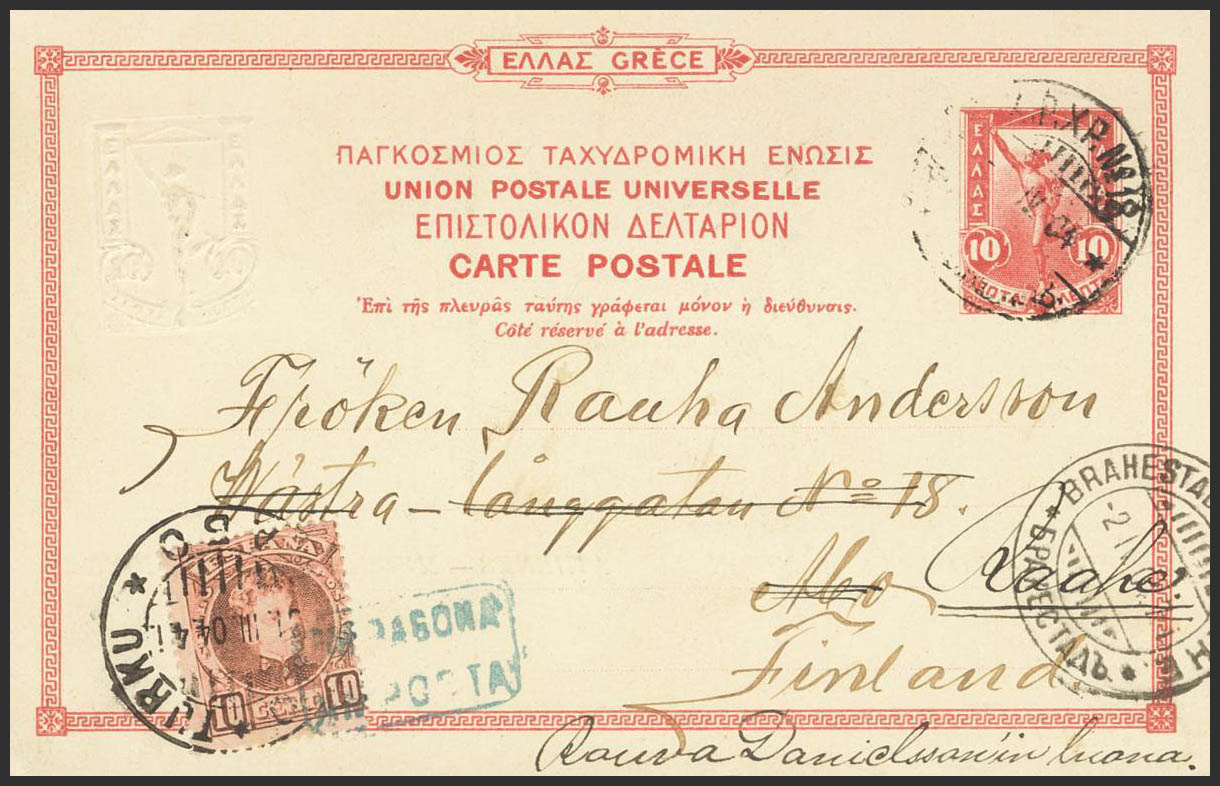 ΕΛΛΑΣ GRÈCE
ΕΛΛΑΣ ΕΛΛΑΣ
ΠΑΓΚΟΣΜΙΟΣ ΤΑΧΥΔΡΟΜΙΚΗ ΕΝΩΣΙΣ
UNION POSTALE UNIVERSELLE
ΕΠΙΣΤΟΛΙΚΟΝ ΔΕΛΤΑΡΙΟΝ
CARTE POSTALE
Ἐπὶ τῆς πλευρᾶς ταύτης γράφεται μόνον ἡ διεύθυνσις.
Côté réservé à l'adresse.
ΕΛΛΑΣ
10 10
04
Fröken Rauha Andersson
Wästra-långgatan No 18.
Åbo Raahe.
Finland
Rouva Danielsson'in luona.
TURKU
III 04
10 10
BRAHESTAD
БРАHЕСТАДЪ